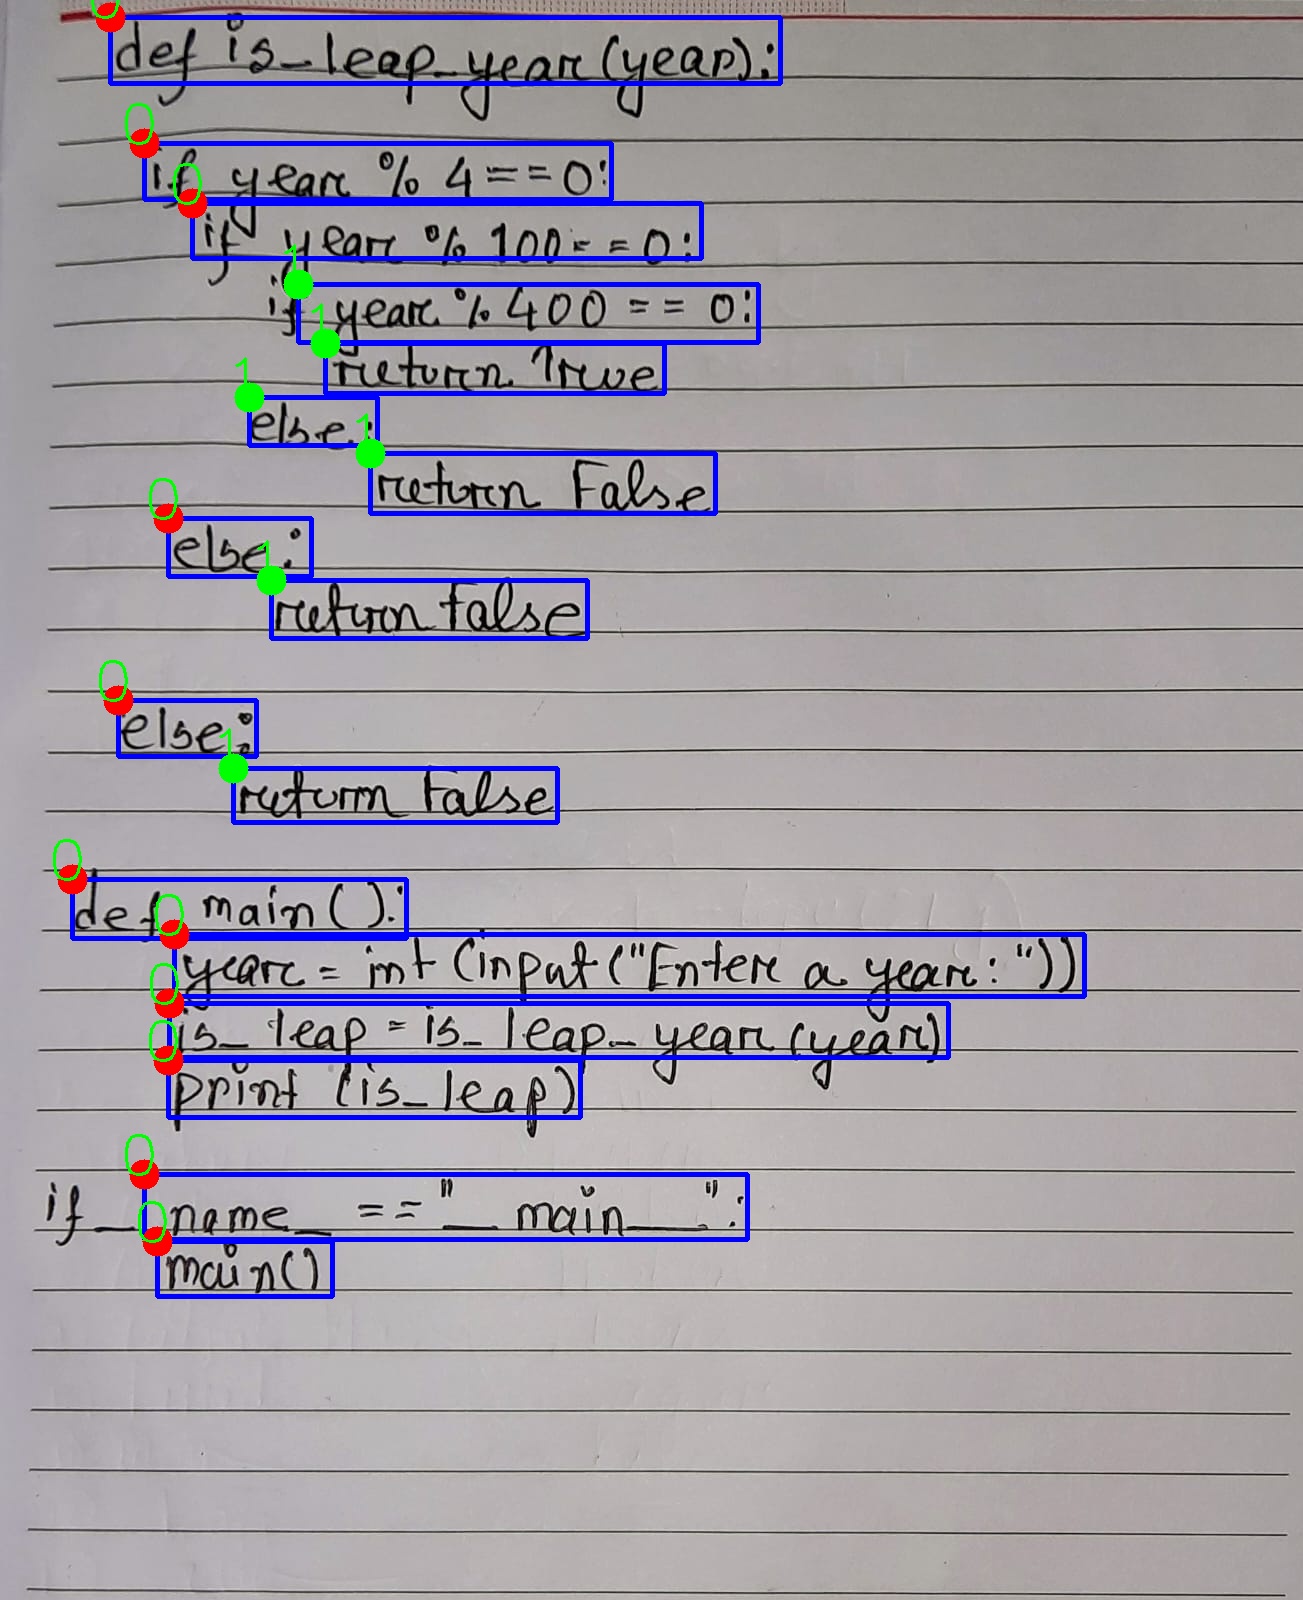 def is_leap_year(year):
if year % 4==0:
if year % 100==0:
if year % 400 == 0:
return True
else:
return False
else:
return False
else:
return False
def main():
year = int(input("Enter a year:"))
is_leap = is_leap_year(year)
print(is_leap)
if __name__ == "__main__":
main()